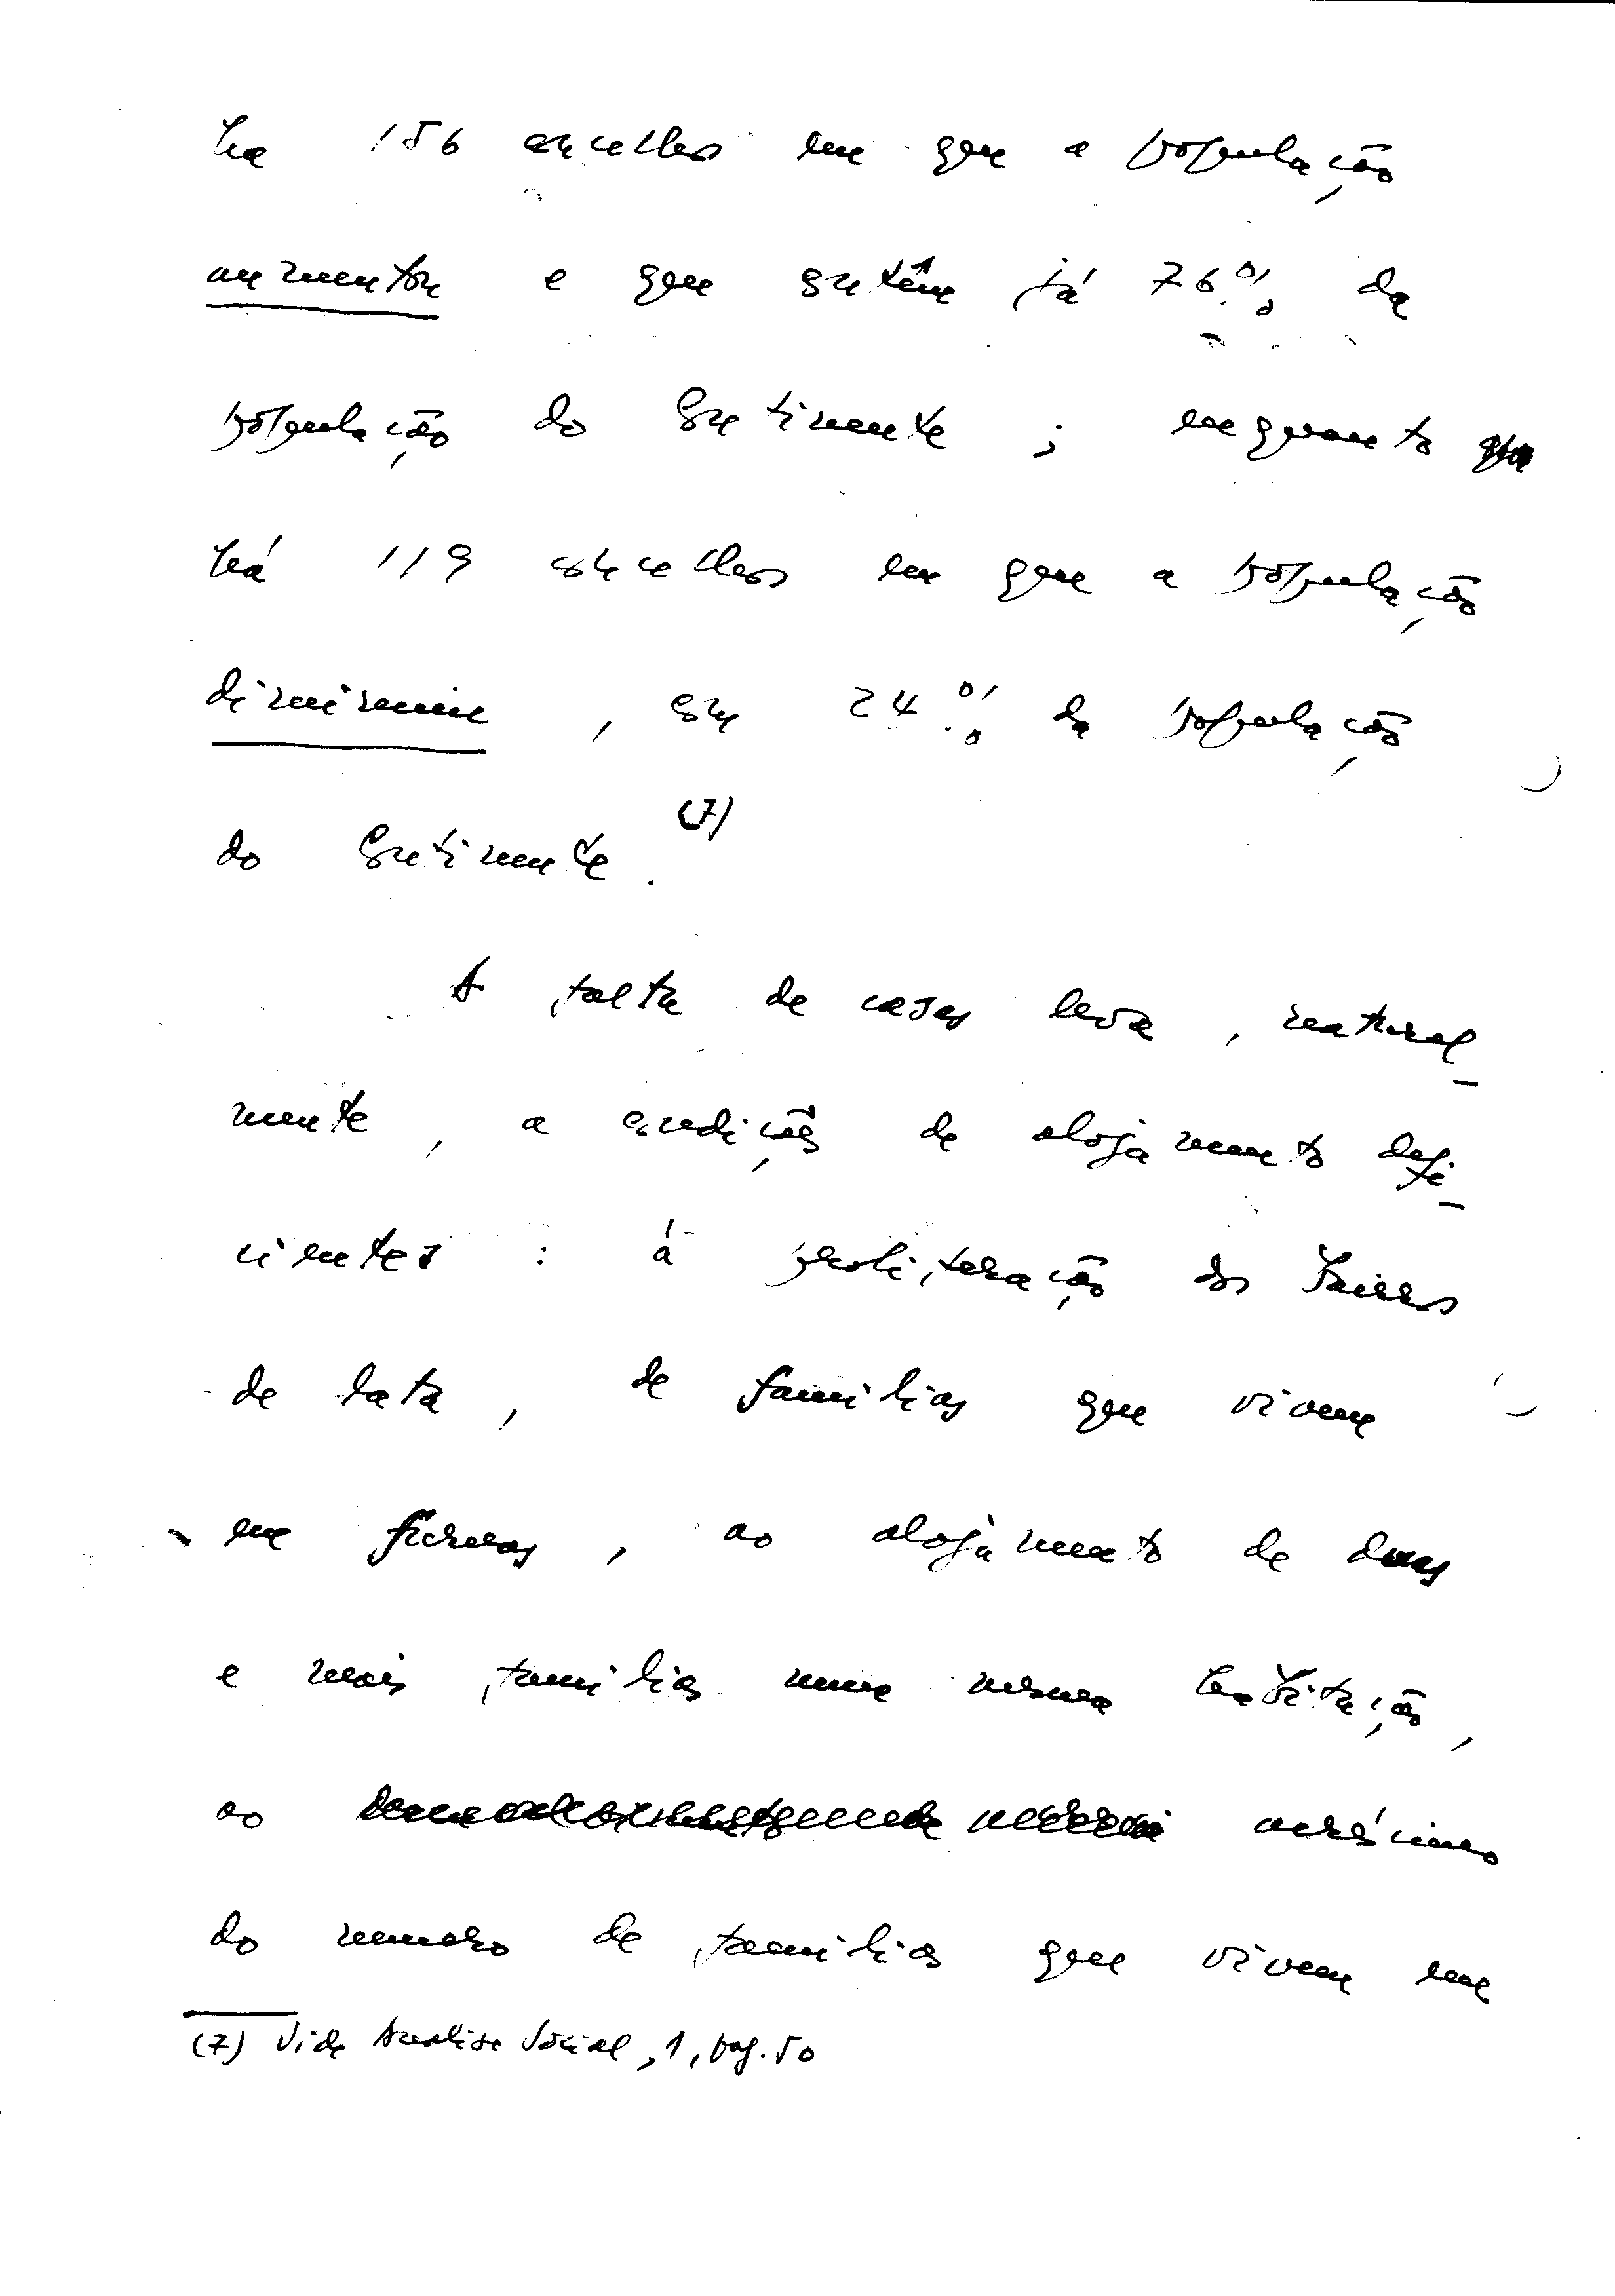 ha 156 concelhos em que a população
aumentou e que contêm já 76% da
população do Continente ; enquanto
há 119 concelhos em que a população
diminuiu , com 24% da população
do Continente . (7)
A falta de casas leva , natural-
mente , a condições de alojamento defi-
cientes : á proliferação dos bairros
de lata , de familias que vivem
em furnas , ao alojamento de duas
e mais familias numa mesma habitação ,
ao acréscimo
do numero de familias que vivem em
(7) Vide Analise Social , 1 , pag. 50